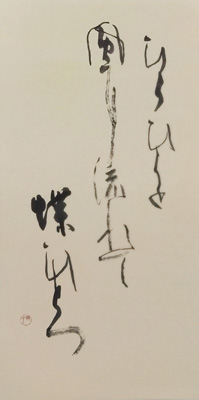 ひらひらと
風に流れて
蝶ひとつ